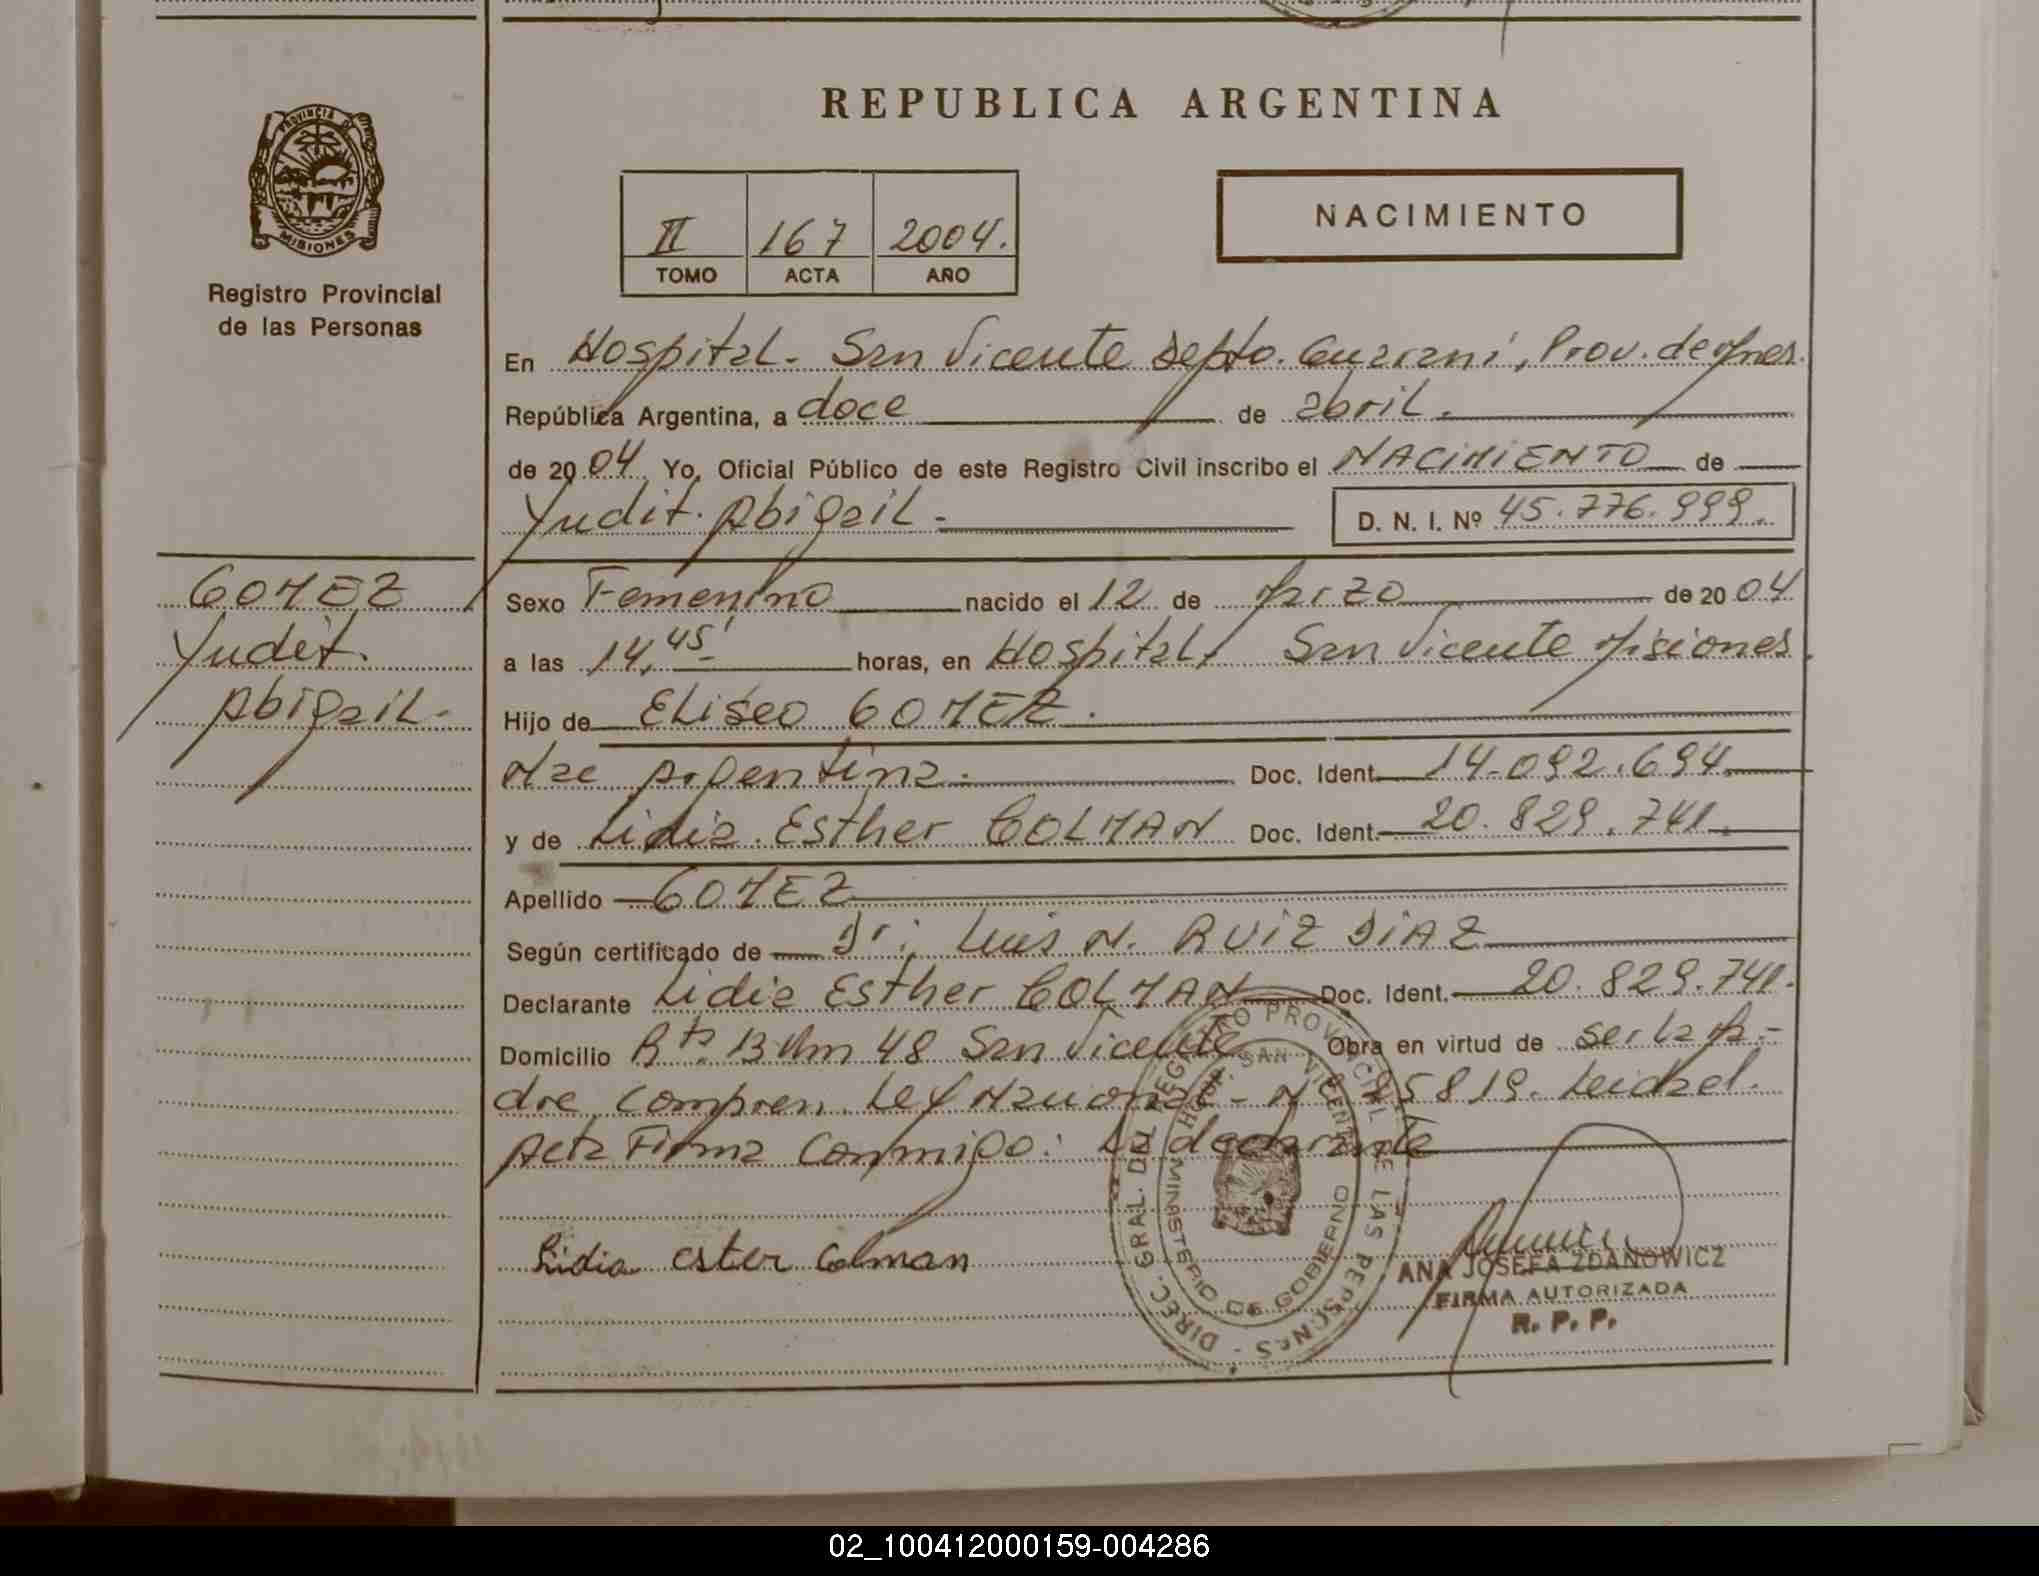 REPUBLICA ARGENTINA
PROVINCIA DE
MISIONES
Registro Provincial
de las Personas
II 167 2004.
TOMO ACTA AÑO
NACIMIENTO
En Hospital - San Vicente Depto. Guarani, Prov. de Mnes.
República Argentina, a doce de abril.
de 2004 Yo, Oficial Público de este Registro Civil inscribo el NACIMIENTO de
Yudit Abigail - D. N. I. Nº 45.776.999.
GOMEZ
Yudit
Abigail-
Sexo Femenino nacido el 12 de Marzo de 2004
a las 14,45' horas, en Hospital, San Vicente Misiones
Hijo de Eliseo GOMEZ.
Nac Argentina. Doc. Ident. 14.092.694
y de Lidia Esther COLMAN Doc. Ident. 20.829.741.
Apellido GOMEZ
Según certificado de Dr: Luis N. RUIZ DIAZ
Declarante Lidia Esther COLMAN Doc. Ident. 20.829.741.
Domicilio Rta. 13 Km 48 San Vicente Obra en virtud de ser la Ma-
dre compren. Ley Nacional - Nº 25819. Leida el
Acta Firma Conmigo: La declarante
Lidia ester Colman
DIREC. GRAL. DEL REGISTRO PROVINCIAL DE LAS PERSONAS
HOSP. SAN VICENTE
MINISTERIO DE GOBIERNO
ANA JOSEFA ZDANOWICZ
FIRMA AUTORIZADA
R. P. P.
02_100412000159-004286